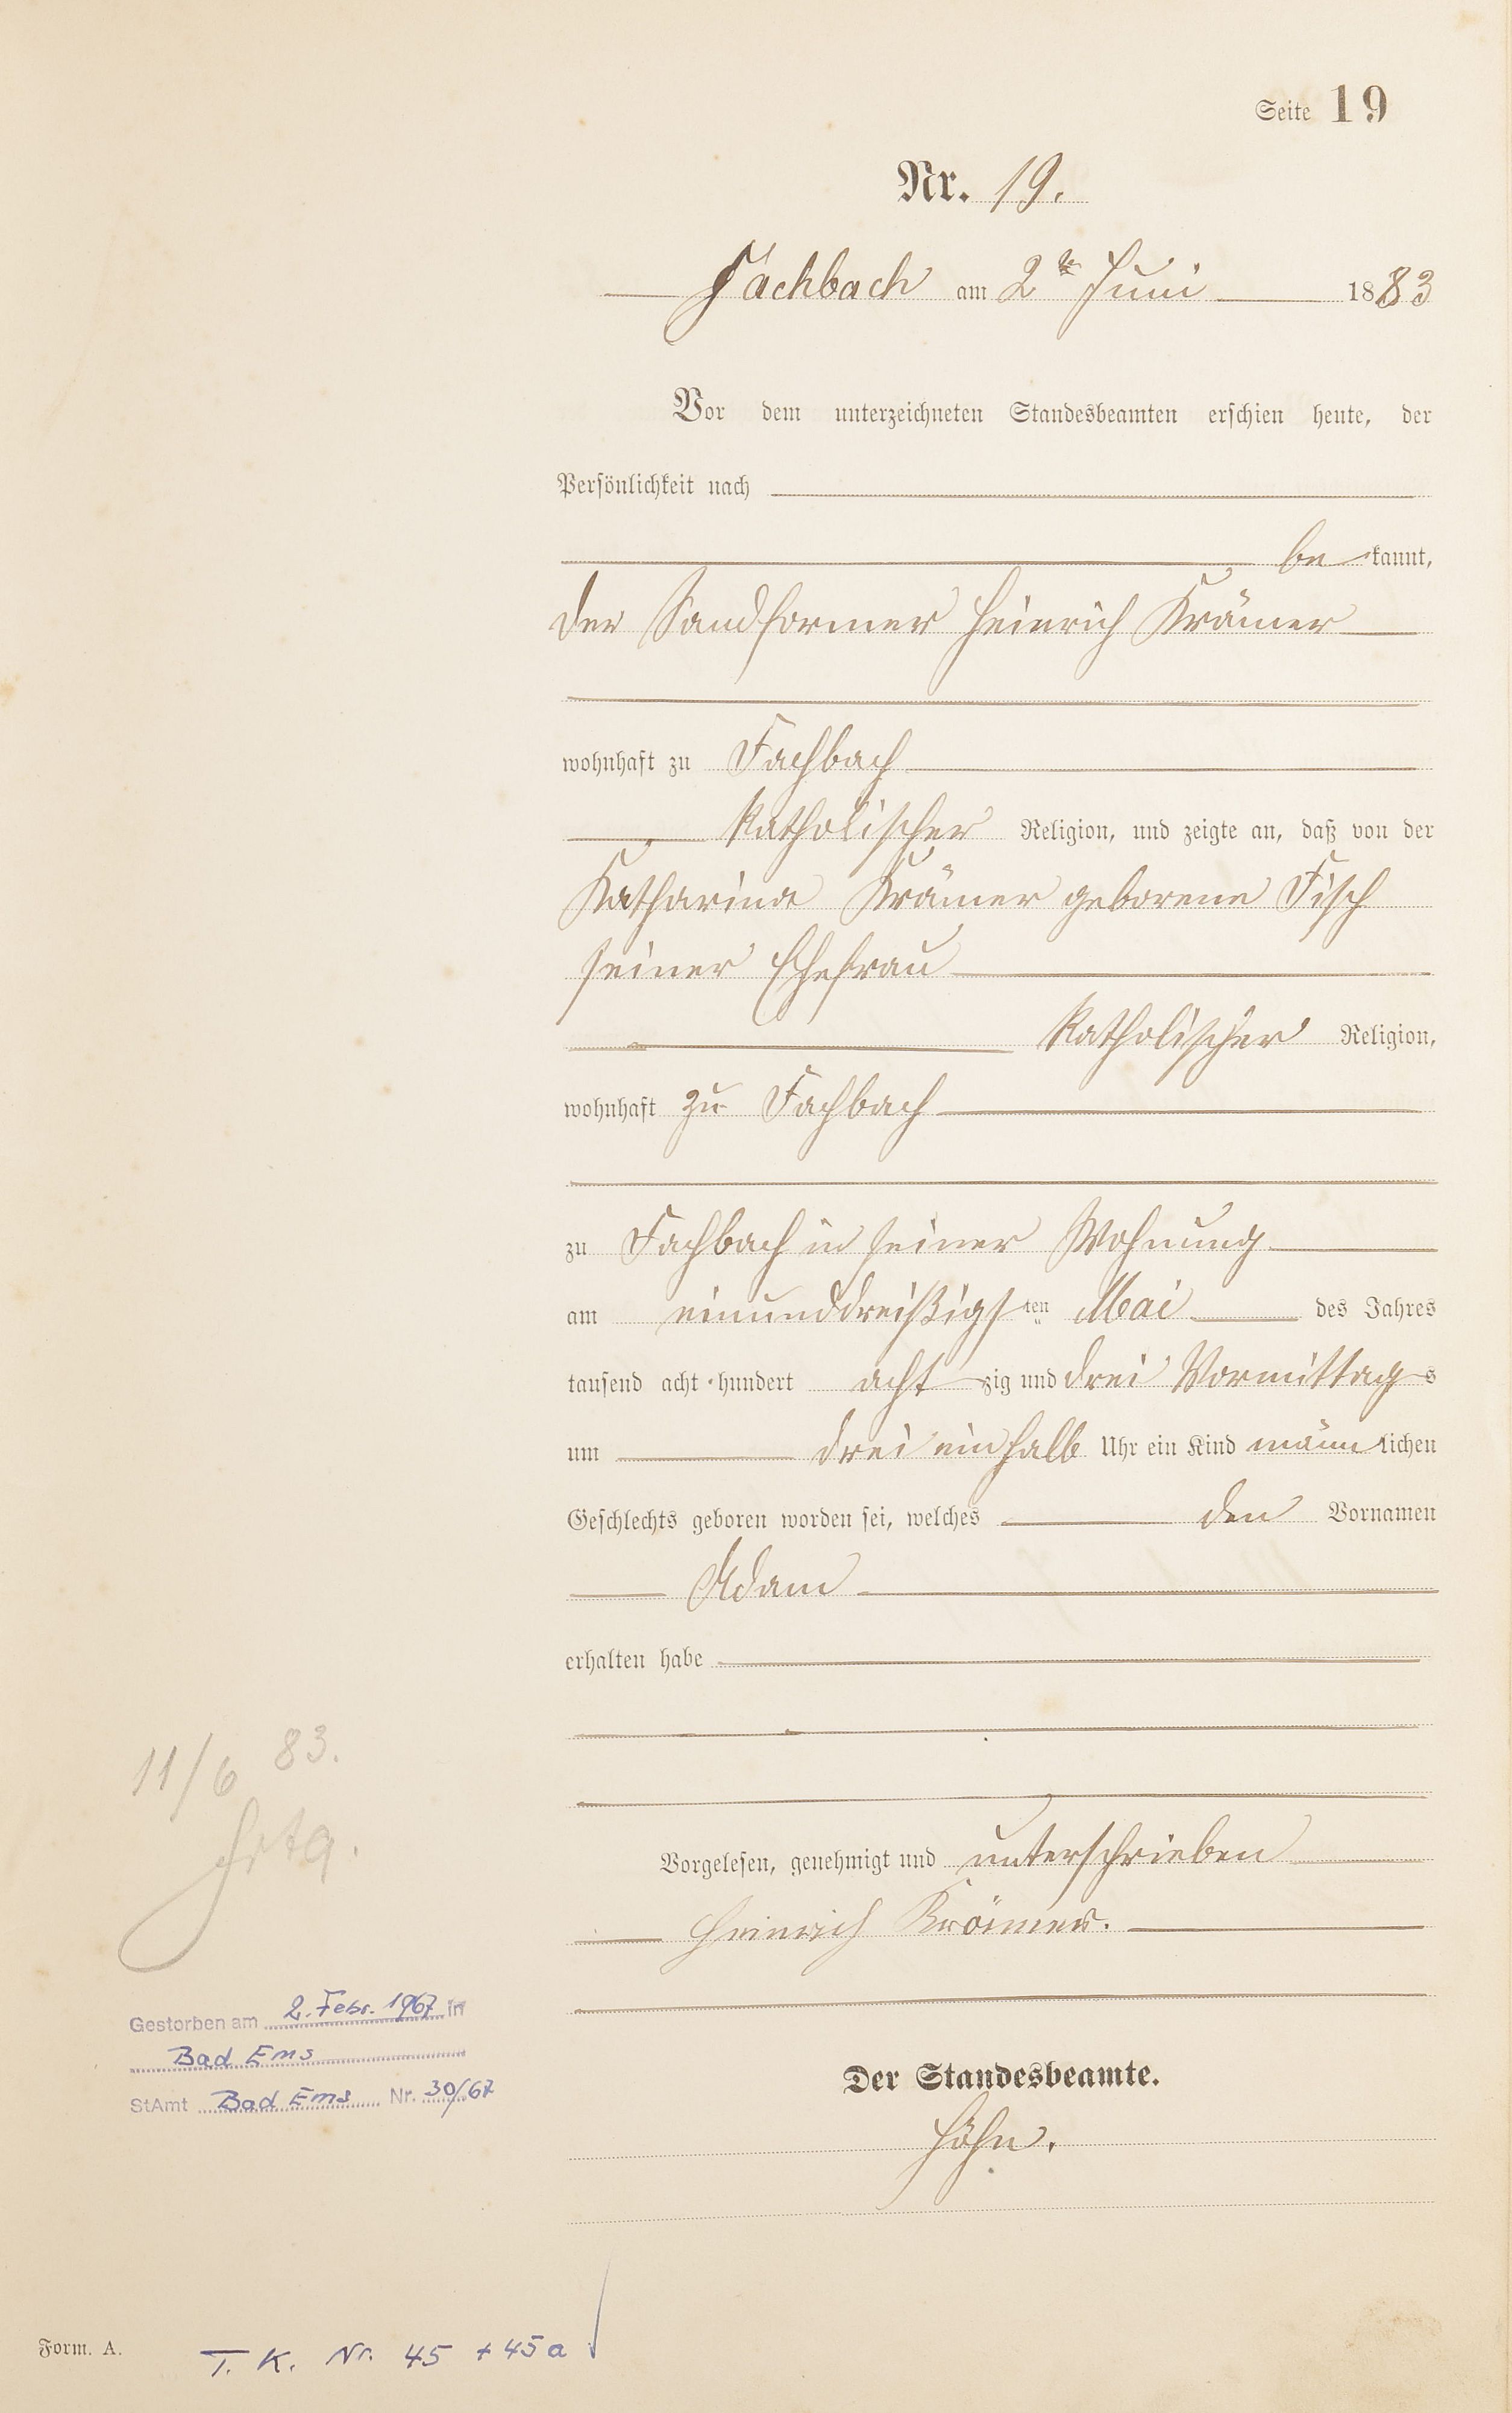 Seite 19
Nr. 19.
Fachbach am 2ten Juni 1883
Vor dem unterzeichneten Standesbeamten erschien heute, der
Persönlichkeit nach
be kannt,
der Sandformer Heinrich Krämer
wohnhaft zu Fachbach
katholischer Religion, und zeigte an, daß von der
Katharina Krämer geborene Fisch
seiner Ehefrau
katholischer Religion,
wohnhaft zu Fachbach
zu Fachbach in seiner Wohnung
am einunddreißigsten Mai des Jahres
tausend acht hundert acht zig und drei Vormittags
um drei ein halb Uhr ein Kind männlichen
Geschlechts geboren worden sei, welches den Vornamen
Adam
erhalten habe
Vorgelesen, genehmigt und unterschrieben
Heinrich Krämer.
Der Standesbeamte.
Höhn.
11/6 83.
Gestorben am 2. Febr. 1967 in
Bad Ems
StAmt Bad Ems Nr. 30/67
Form. A.
T. K. Nr. 45 + 45a